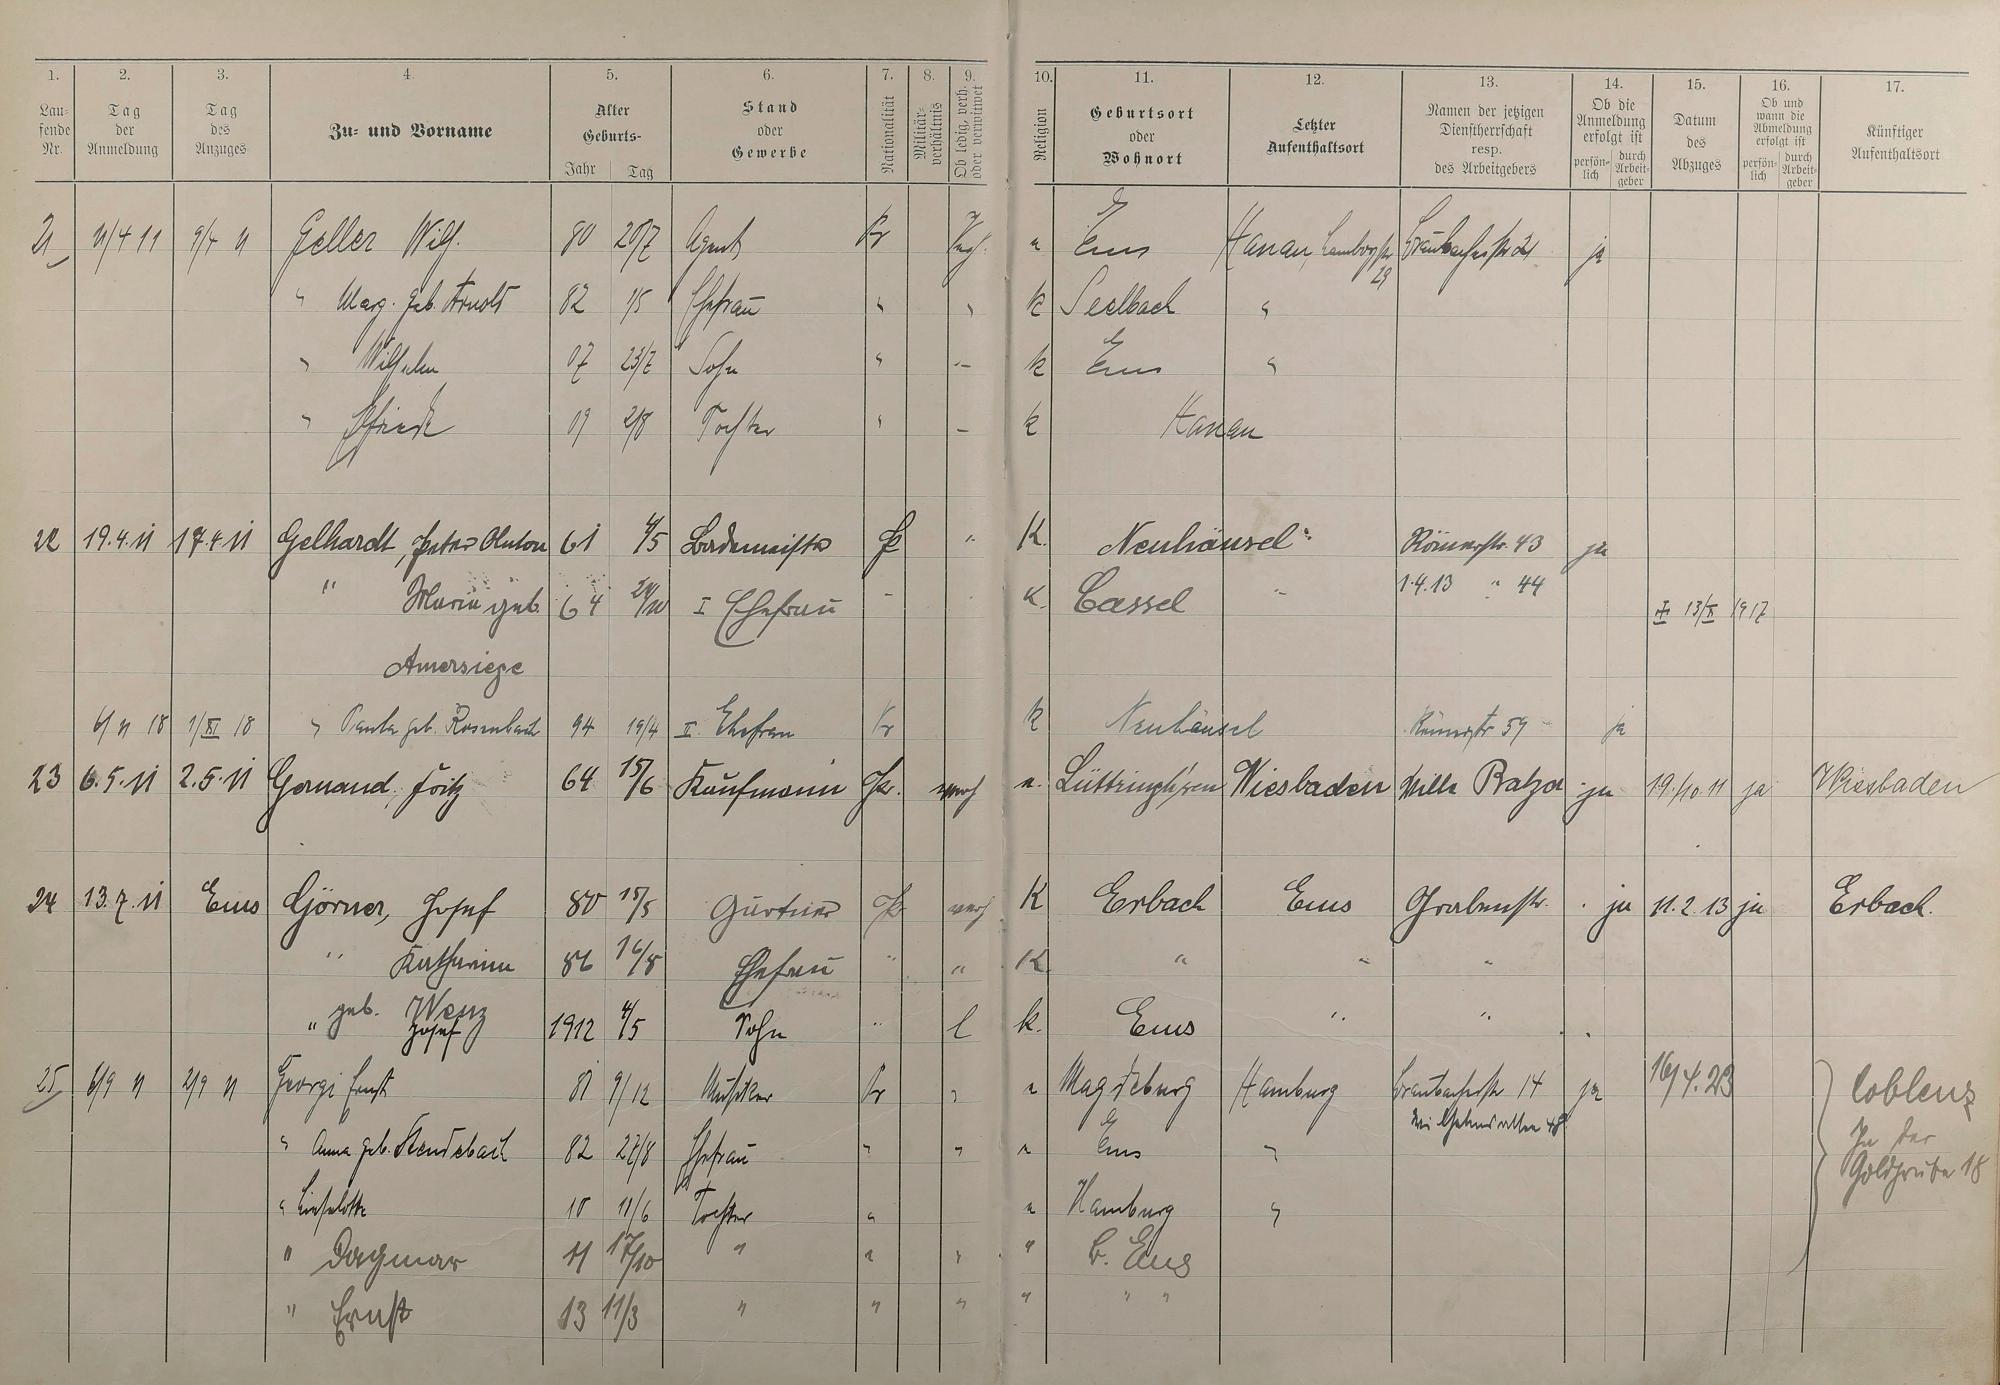 1. 2. 3. 4. 5. 6. 7. 8. 9. 10. 11. 12. 13. 14. 15. 16. 17.
Laufende Nr.
Tag der Anmeldung
Tag des Anzuges
Zu- und Vorname
Alter Geburts- Jahr Tag
Stand oder Gewerbe
Nationalität
Militärverhältnis
Ob ledig, verh. oder verwitwet
Religion
Geburtsort oder Wohnort
Letzter Aufenthaltsort
Namen der jetzigen Dienstherrschaft resp. des Arbeitgebers
Ob die Anmeldung erfolgt ist persönlich durch Arbeitgeber
Datum des Abzuges
Ob und wann die Abmeldung erfolgt ist persönlich durch Arbeitgeber
Künftiger Aufenthaltsort
21 11/4 11 9/4 11 Geller Wilh. 80 20/7 Agent Pr Ems Hanau, 29 ja
" Marg. geb. Arnold 82 1/5 Ehefrau " " k Seelbach "
" Wilhelm 07 23/7 Sohn " – k Ems "
" Elfriede 09 2/8 Tochter " – k Hanau
22 19.4.11 17.4.11 Gelhardt, Peter Anton 61 4/5 Bademeister Pr " K. Neuhäusel Römerstr. 43 ja
" Maria geb. 64 I Ehefrau K. Cassel 1.4.13 " 44 13/X 1917
Amersiege
6/11 18 1/XI 18 " Paula geb. Rosenbach 94 19/4 II. Ehefrau Pr k Neuhäusel Römerstr 59 ja
23 6.5.11 2.5.11 Gernand, Fritz 64 15/6 Kaufmann Pr. verh Wiesbaden Villa Balzer ja 19./10.11 ja Wiesbaden
24 13.7.11 Ems Görner, Josef 80 15/5 Gärtner Pr verh K Erbach Ems Grabenstr. ja 11.2.13 ja Erbach.
" Katharina 86 16/8 Ehefrau " " K " " "
geb. Wenz
" Josef 1912 4/5 Sohn " l k. Ems " "
25 6/9 11 2/9 11 Georgi Ernst 81 9/12 Musiker Pr " Magdeburg Hamburg Braubacherstr 14 ja 16/4.23 Coblenz
" Anna geb. Stendebach 82 27/8 Ehefrau " " Ems " In der
Goldgrube 18
" Lieselotte 10 11/6 Tochter " Hamburg "
" Dagmar 11 17/10 " " " " B. Ems
" Ernst 13 11/3 " " " " " "